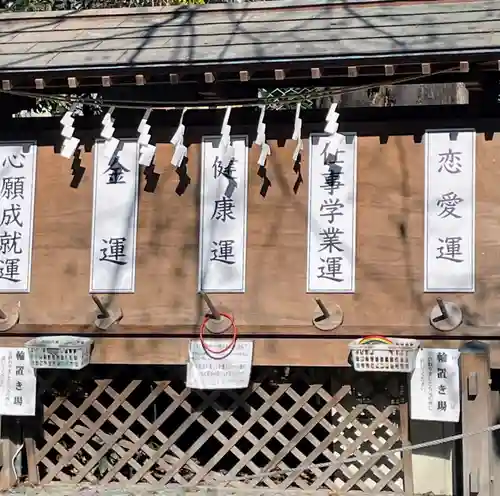 恋愛運
仕事学業運
健康運
金運
心願成就運
輪置き場
輪置き場